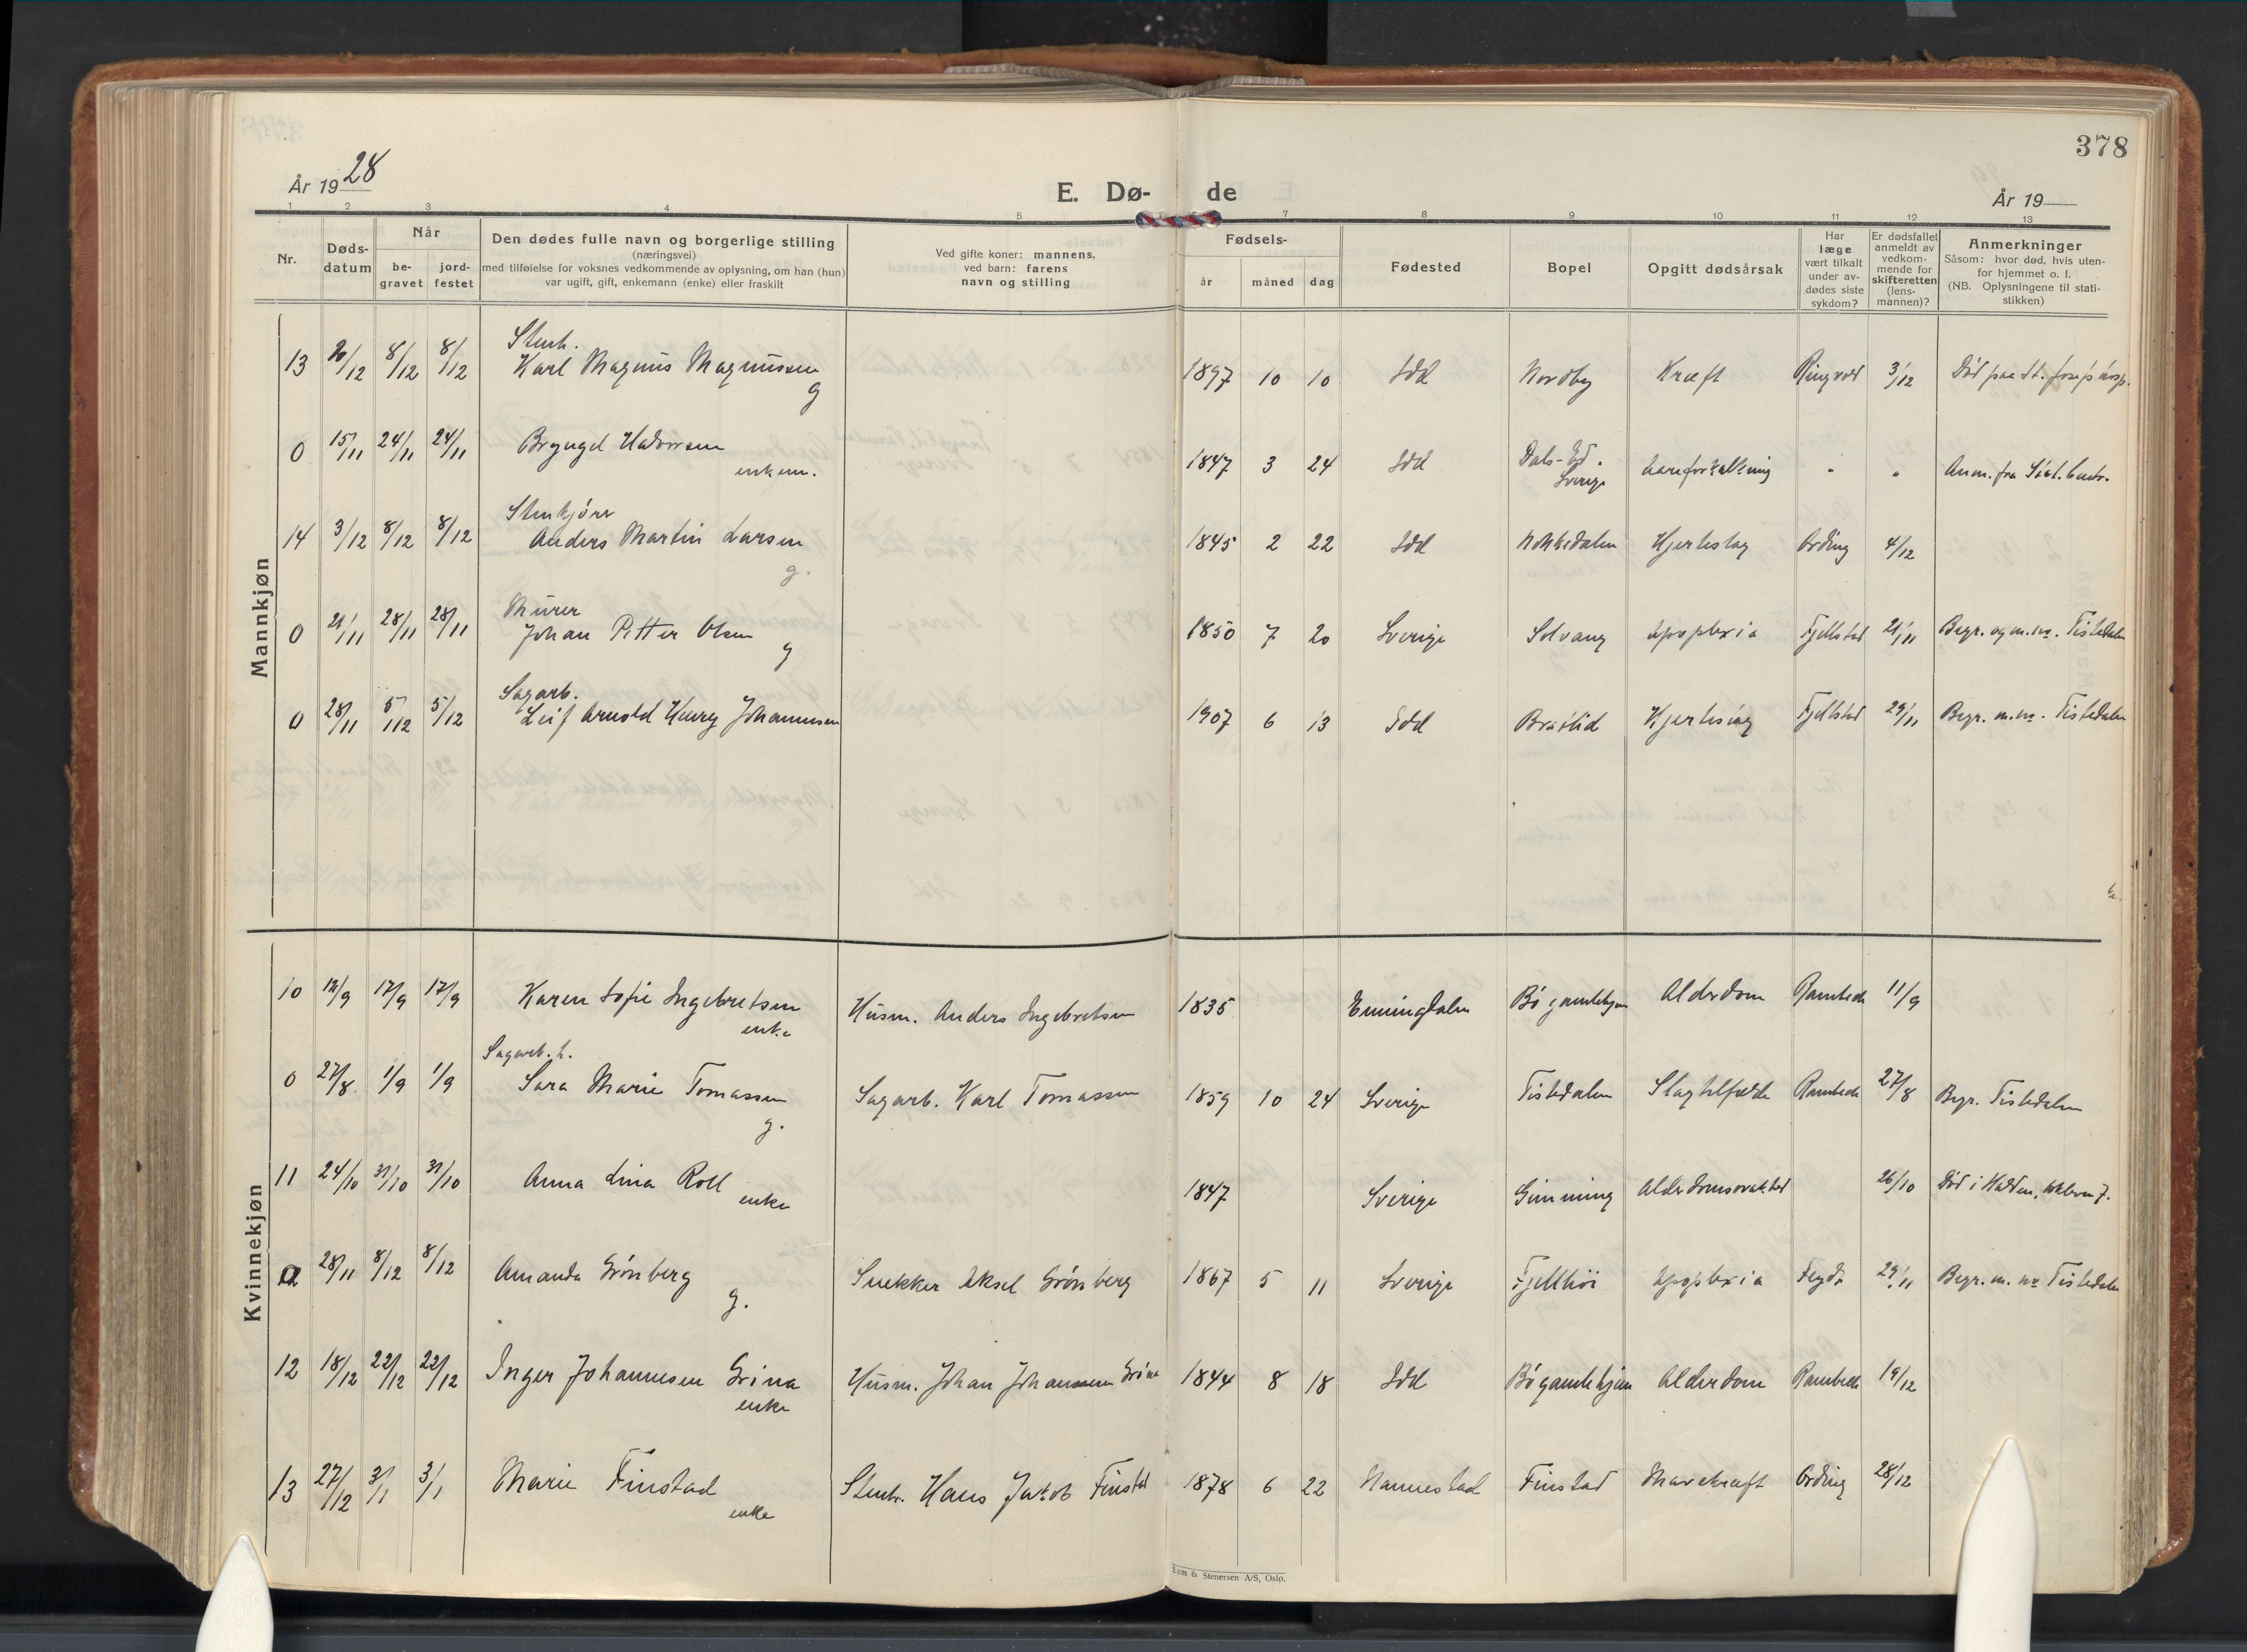 378
År 1928
E. Dø-de
År 19
1 2 3 4 5 7 8 9 10 11 12 13
Nr.
Døds-datum
Når
be-gravet
jord-festet
Den dødes fulle navn og borgerlige stilling
(næringsvei)
med tilføielse for voksnes vedkommende av oplysning, om han (hun)
var ugift, gift, enkemann (enke) eller fraskilt
Ved gifte koner: mannens,
ved barn: farens
navn og stilling
Fødsels-
år måned dag
Fødested
Bopel
Opgitt dødsårsak
Har læge vært tilkalt under av-dødes siste sykdom?
Er dødsfallet anmeldt av vedkom-mende for skifteretten (lens-mannen)?
Anmerkninger
Såsom: hvor død, hvis uten-
for hjemmet o. l.
(NB. Oplysningene til stati-
stikken)
Mannkjøn
Stenh.
13 /12 8/12 8/12 Karl Magnus Magnussen g 1897 10 10 Idd Nordby Kræft Ringvold 3/12 Død paa St. Josefs hosp.
0 15/11 24/11 24/11 Bryngel Halvorsen 1847 3 24 Idd Dals-Ed. aareforkalkning " "
enkem. Sverige
Stenkjører
14 3/12 8/12 8/12 Anders Martin Larsen 1845 2 22 Idd Hjerteslag Ording 4/12
g.
Murer
0 21/11 28/11 28/11 Johan Petter Olsen g 1850 7 20 Sverige Solvang Apoplexia Fjellstad 21/11 Begr. og m. nr. Tistedalen
Sagarb.
0 28/11 5/12 5/12 Leif Arnold Henry Johannessen 1907 6 13 Idd Bratlid Fjellstad 29/11 Begr. m. nr. Tistedalen
Kvinnekjøn
10 12/9 17/9 17/9 Karen Sofie Ingebretsen Husm. Anders Ingebretsen 1835 Enningdalen Alderdom Rambech 11/9
enke
Sagarb. h.
0 27/8 1/9 1/9 Sara Marie Tomassen Sagarb. Karl Tomassen 1859 10 24 Sverige Tistedalen Slagtilfælde Rambech 27/8 Begr. Tistedalen
g.
11 24/10 31/10 31/10 Anna Lina Roll 1847 Sverige Gimming Alderdomssvakhet 26/10 Død i Halden,
enke
0 28/11 8/12 8/12 Amanda Grönberg Snekker Aksel Grönberg 1867 5 11 Sverige Fjellhöi Apoplexia 29/11 Begr. m. nr Tistedalen
g.
12 18/12 22/12 22/12 Inger Johannesen Husm. Johan Johannesen 1844 8 18 Idd Bögamlehjem Alderdom Rambech 19/12
enke
13 27/12 3/1 3/1 Marie Finstad Stenh. Hans Jakob Finstad 1878 6 22 Hannestad Finstad Mavekræft Ording 28/12
enke
& Stenersen A/S, Oslo.